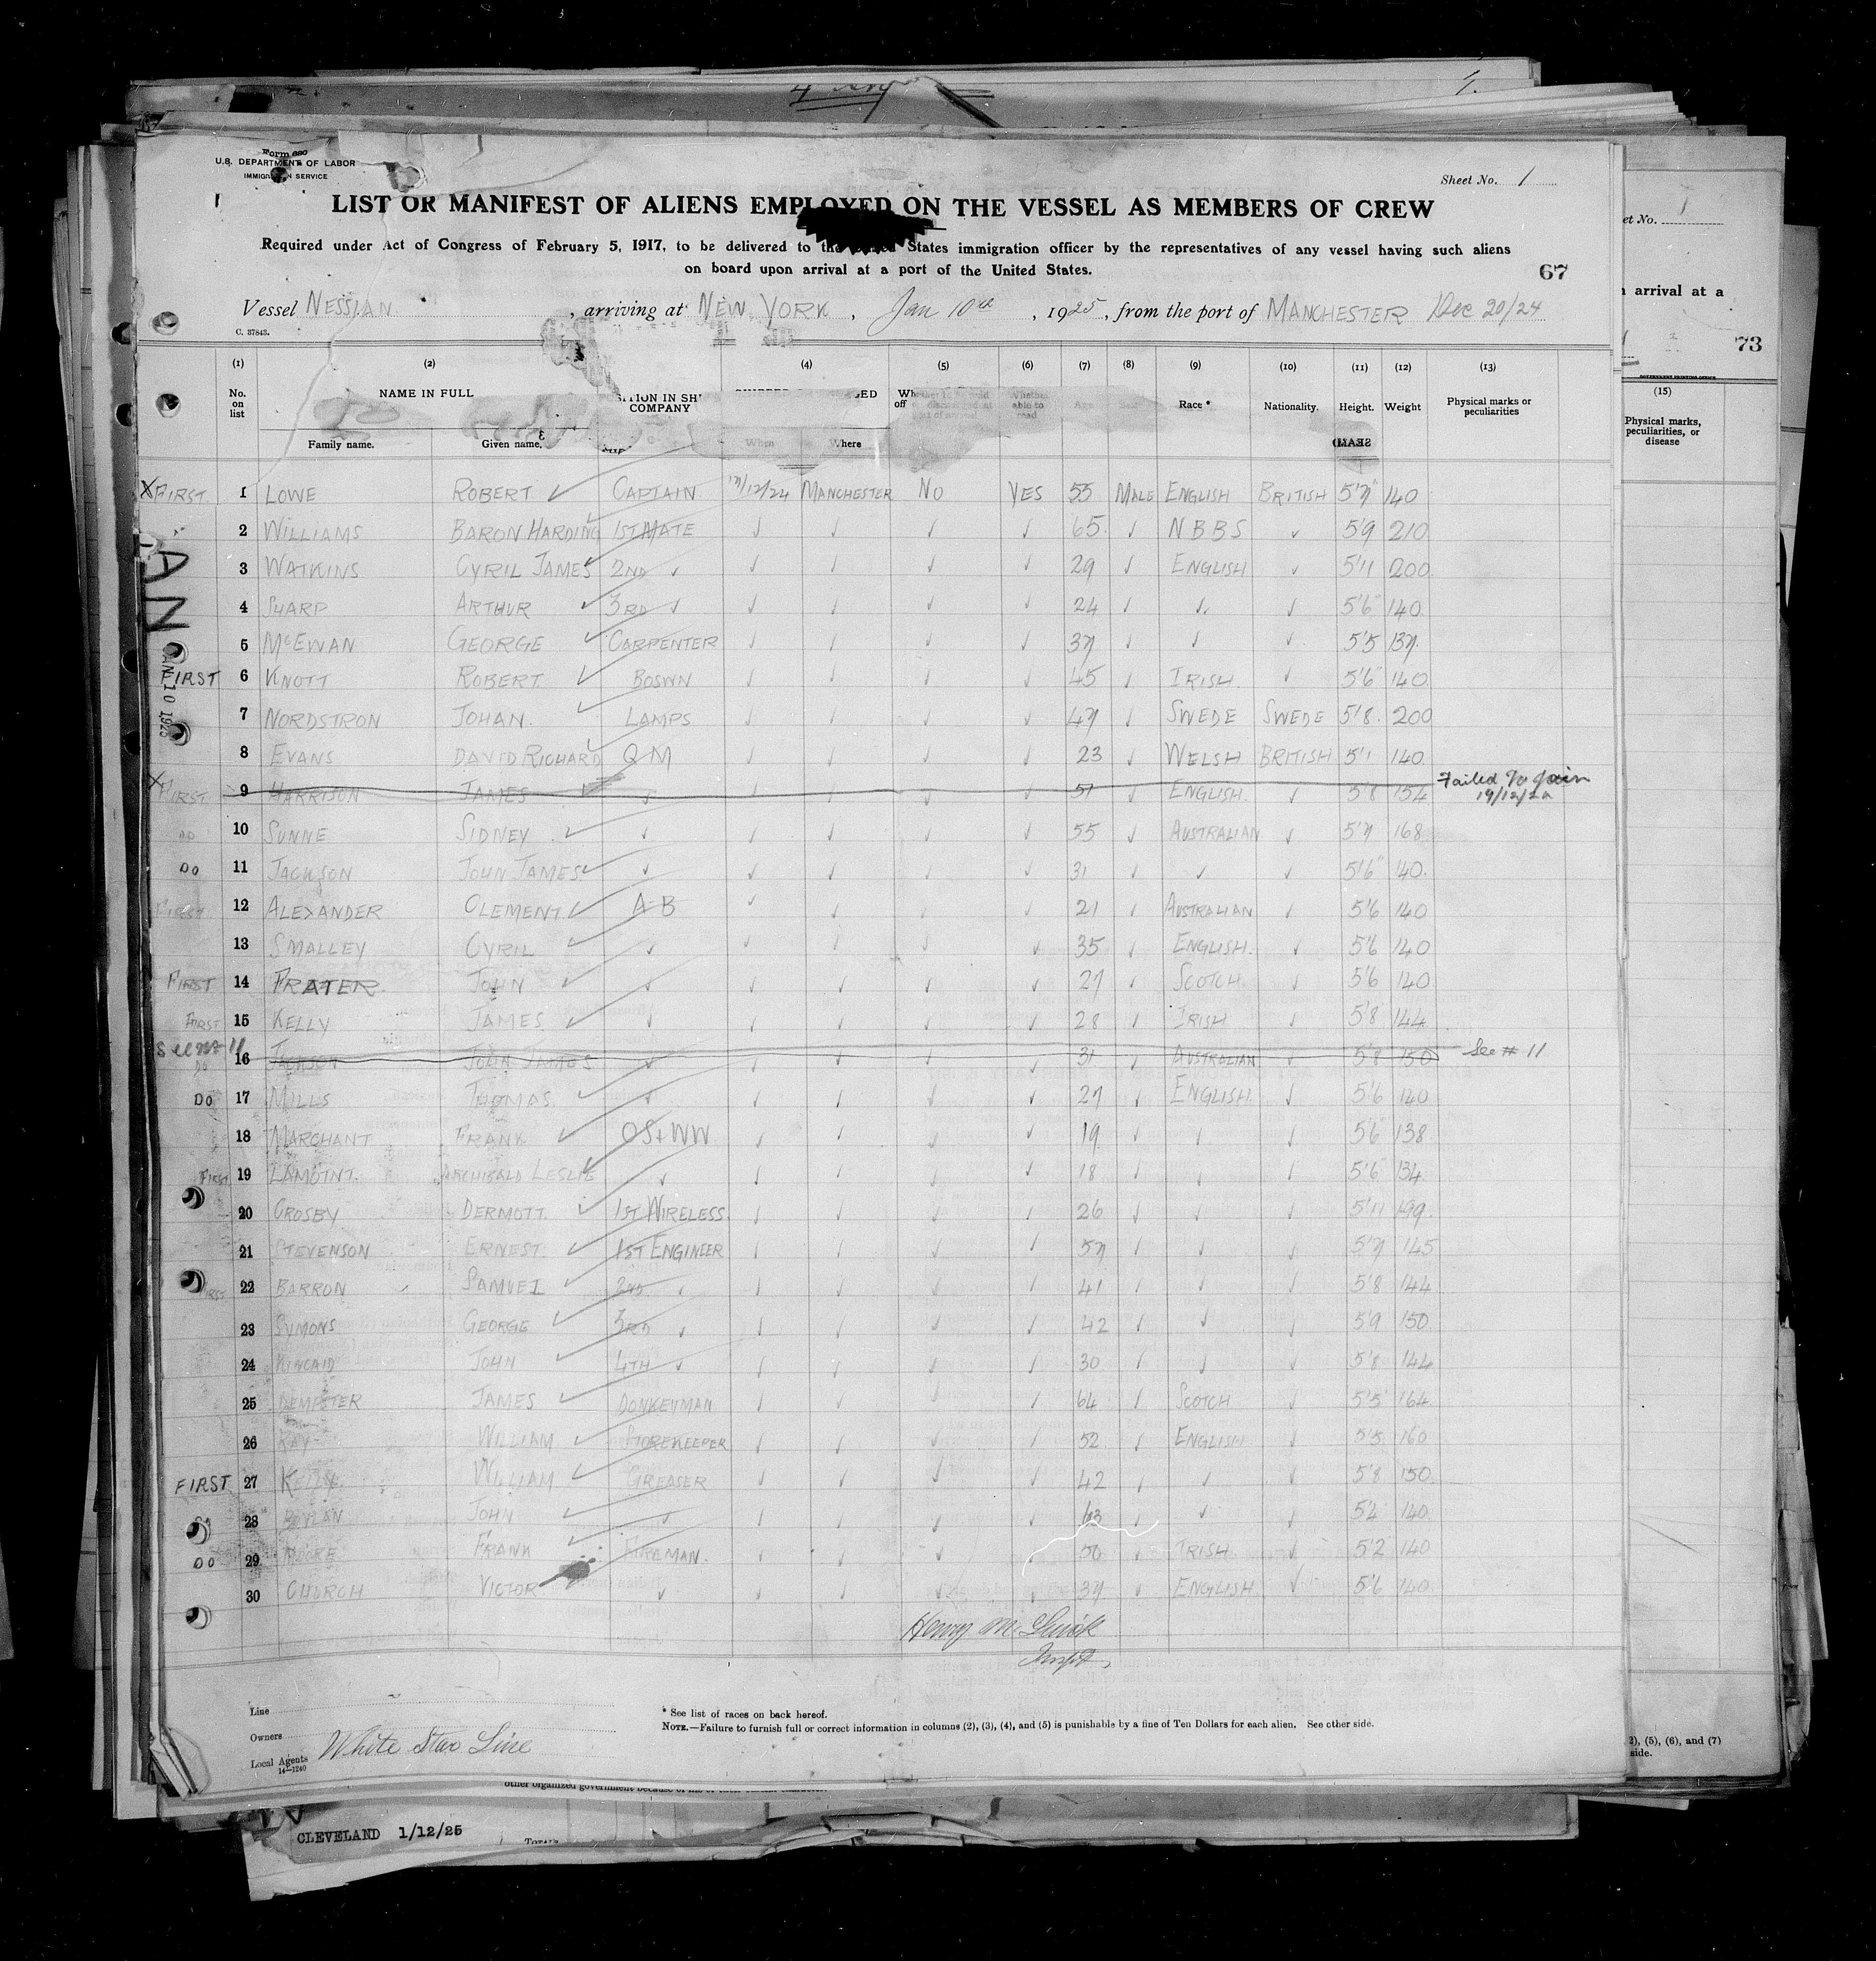 Form 680
U.S. DEPARTMENT OF LABOR
IMMIGRATION SERVICE
Sheet No. 1
LIST OR MANIFEST OF ALIENS EMPLOYED ON THE VESSEL AS MEMBERS OF CREW
Required under Act of Congress of February 5, 1917, to be delivered to the United States immigration officer by the representatives of any vessel having such aliens
on board upon arrival at a port of the United States.
67
Vessel NESSIAN, arriving at NEW YORK, Jan 10th, 1925, from the port of MANCHESTER Dec 20/24
C. 37843.
(1) (2) (4) (5) (6) (7) (8) (9) (10) (11) (12) (13)
No. on list NAME IN FULL COMPANY Race * Nationality. Height. Weight Physical marks or peculiarities
Family name. Given name. When Where
X FIRST 1 LOWE ROBERT ✓ CAPTAIN 17/12/24 MANCHESTER NO YES 55 MALE ENGLISH BRITISH 5'7" 140
2 WILLIAMS BARON HARDING 1ST MATE ✓ ✓ ✓ ✓ 65 ✓ N B B S ✓ 5'9 210
3 WATKINS CYRIL JAMES 2ND ✓ ✓ ✓ ✓ ✓ 29 ✓ ENGLISH ✓ 5'11 200
4 SHARP ARTHUR ✓ 3RD ✓ ✓ ✓ ✓ ✓ 24 ✓ ✓ ✓ 5'6" 140
5 McEWAN GEORGE ✓ CARPENTER ✓ ✓ ✓ ✓ 37 ✓ ✓ ✓ 5'5 137
FIRST 6 KNOTT ROBERT ✓ BOSWN ✓ ✓ ✓ ✓ 45 ✓ IRISH ✓ 5'6" 140
7 NORDSTRON JOHAN ✓ LAMPS ✓ ✓ ✓ ✓ 47 ✓ SWEDE SWEDE 5'8 200
8 EVANS DAVID RICHARD QM ✓ ✓ ✓ ✓ 23 ✓ WELSH BRITISH 5'1 140
X FIRST 9 HARRISON JAMES ✓ ✓ ✓ ✓ ✓ 51 ✓ ENGLISH ✓ 5'8 154 Failed To Join
DO 10 SUNNE SIDNEY ✓ ✓ ✓ ✓ ✓ ✓ 55 ✓ AUSTRALIAN ✓ 5'7 168
DO 11 JACKSON JOHN JAMES ✓ ✓ ✓ ✓ ✓ ✓ 31 ✓ ✓ ✓ 5'6" 140
FIRST 12 ALEXANDER CLEMENT ✓ A B ✓ ✓ ✓ ✓ 21 ✓ AUSTRALIAN ✓ 5'6 140
13 SMALLEY CYRIL ✓ ✓ ✓ ✓ ✓ ✓ 35 ✓ ENGLISH ✓ 5'6 140
FIRST 14 FRATER JOHN ✓ ✓ ✓ ✓ ✓ ✓ 27 ✓ SCOTCH ✓ 5'6 140
FIRST 15 KELLY JAMES ✓ ✓ ✓ ✓ ✓ ✓ 28 ✓ IRISH ✓ 5'8 144
DO 16 JACKSON JOHN JAMES ✓ ✓ ✓ ✓ ✓ 31 ✓ AUSTRALIAN ✓ 5'8 150 See # 11
DO 17 MILLS THOMAS ✓ ✓ ✓ ✓ ✓ ✓ 27 ✓ ENGLISH ✓ 5'6 140
18 MARCHANT FRANK ✓ OS+WW ✓ ✓ ✓ ✓ 19 ✓ ✓ ✓ 5'6 138
FIRST 19 LAMOINT ARCHIBALD LESLIE ✓ ✓ ✓ ✓ ✓ 18 ✓ ✓ ✓ 5'6 134
20 CROSBY DERMOTT ✓ 1ST WIRELESS ✓ ✓ ✓ ✓ 26 ✓ ✓ ✓ 5'11 199
21 STEVENSON ERNEST ✓ 1ST ENGINEER ✓ ✓ ✓ ✓ 57 ✓ ✓ ✓ 5'7 145
FIRST 22 BARRON SAMUEL ✓ 2ND ✓ ✓ ✓ ✓ ✓ 41 ✓ ✓ ✓ 5'8 144
23 SYMONS GEORGE ✓ 3RD ✓ ✓ ✓ ✓ ✓ 42 ✓ ✓ ✓ 5'9 150
24 KINCAID JOHN ✓ 4TH ✓ ✓ ✓ ✓ ✓ 30 ✓ ✓ ✓ 5'8 144
25 DEMPSTER JAMES ✓ DONKEYMAN ✓ ✓ ✓ ✓ 64 ✓ SCOTCH ✓ 5'5 164
26 RAY WILLIAM ✓ STOREKEEPER ✓ ✓ ✓ ✓ 52 ✓ ENGLISH ✓ 5'5 160
FIRST 27 KELLY WILLIAM ✓ GREASER ✓ ✓ ✓ ✓ 42 ✓ ✓ ✓ 5'8 150
28 BOYLAN JOHN ✓ ✓ ✓ ✓ ✓ ✓ 43 ✓ ✓ ✓ 5'4 140
DO 29 MOORE FRANK ✓ FIREMAN ✓ ✓ ✓ ✓ 50 ✓ IRISH ✓ 5'2 140
30 CHURCH VICTOR ✓ ✓ ✓ ✓ ✓ 37 ✓ ENGLISH ✓ 5'6 140
JAN 10 1925
Line
Owners
Local Agents White Star Line
14—1240
* See list of races on back hereof.
NOTE.—Failure to furnish full or correct information in columns (2), (3), (4), and (5) is punishable by a fine of Ten Dollars for each alien. See other side.
arrival at a
73
(15)
Physical marks, peculiarities, or disease
(5), (6), and (7)
side.
CLEVELAND 1/12/25